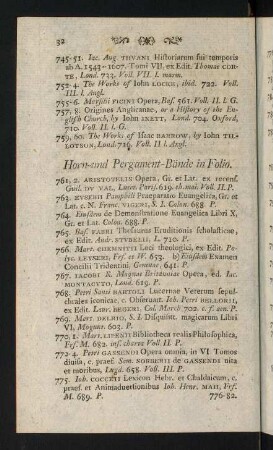 32
745-51. Iac. Aug. THVANI Historiarum sui temporis
ab A. 1543-1607. Tomi VII. ex Edit. Thomae COR-
TE, Lond. 733. Voll. VII. I. marm.
752-4. The Works of Iohn LOCKE, ibid. 722. Voll.
III. I. Angl.
755-6. Marsilii FICINI Opera, Bas. 561. Voll. II. I. G.
757, 8. Origines Anglicanae, or a History of the En-
glisch Church, by Iohn INETT, Lond. 704. Oxford,
710. Voll. II. I. G.
759, 60. The Works of Isaac BARROW, by Iohn TIL-
LOTSON, Lond. 716. Voll. II I. Angl.
Horn-und Pergament-Bände in Folio.
761, 2. ARISTOTELIS Opera, Gr. et Lat. ex recens.
Guil. DV VAL, Lutet. Paris. 619. ch. mai. Voll. II. P.
763. EVSEBII Pamphili Praeparatio Euangelica, Gr. et
Lat. c. N. Franc. VIGERI, S. I. Colon. 688. P.
764. Eiusdem de Demonstratione Euangelica Libri X,
Gr. et Lat. Colon. 688. P.
765. Bas. FABRI Thesaurus Eruditionis scholasticae,
ex Edit. Andr. STVBELII, L. 710. P.
766. Mart. CHEMNITII Loci theologici, ex Edit. Po-
lyc. LEYSERI, Fcf. et W. 653. b) Eiusdem Examen
Concilii Tridentini, Geneuae, 641. P.
767. IACOBI R. Magnae Britanniae Opera, ed. Iac.
MONTACVTO, Lond. 619. P.
768. Petri Sancti BARTOLI Lucernae Veterum sepul-
chrales iconicae, c. Obseruat. Ioh. Petri BELLORII,
ex Edit. Laur. BEGERI, Col. March. 702. c. f. aen. P.
769. Mart. DELRIO, S. I. Disquisit. magicarum Libri
VI. Mogunt. 603. P.
770, 1. Mart. LIPENII Bibliotheca realis Philosophica,
Fcf. M. 682. inf. charta Voll. II. P.
772-4. Petri GASSENDI Opera omnia, in VI Tomos
diuisa, c. praef. Sam. SORBERII de GASSENDI vita
et moribus, Lugd. 658. Voll. III. P.
775. Ioh. COCCEII Lexicon Hebr. et Chaldaicum, c.
praef. et Animaduertionibus Ioh. Henr. MAII, Fcf.
M. 689. P.
776-82.